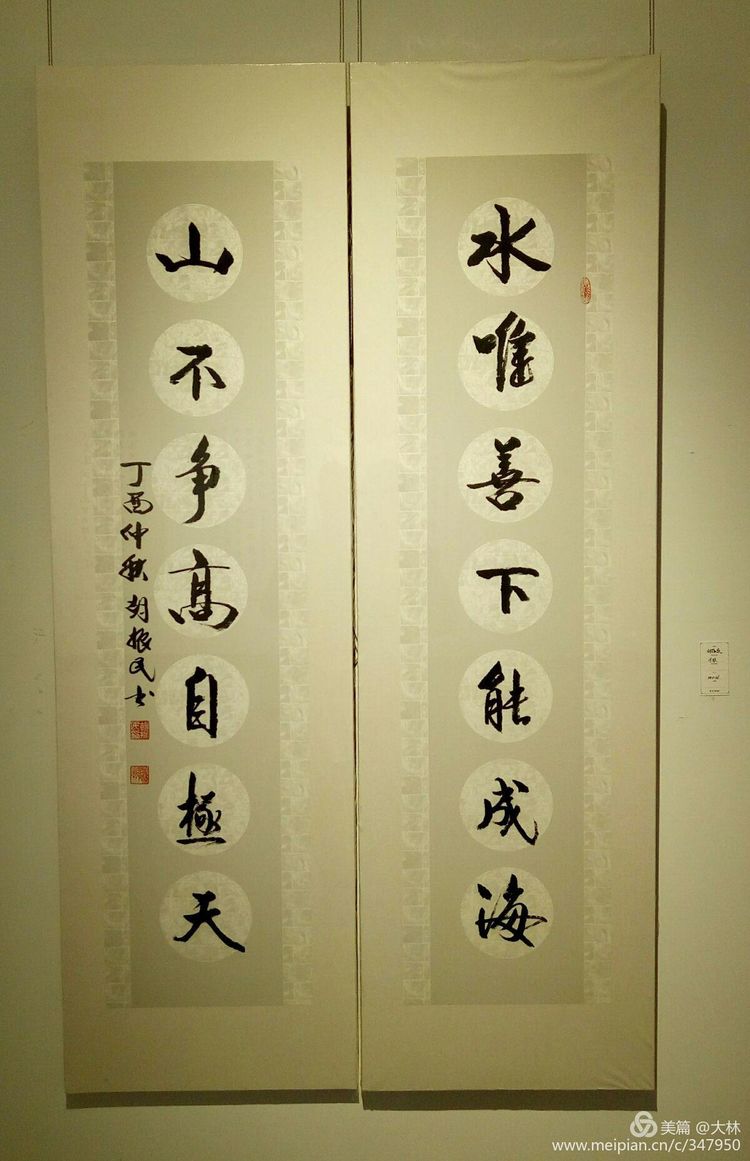 水唯善下能成海
山不争高自極天
丁酉仲秋胡振民书
美篇 @大林
www.meipian.cn/c/347950